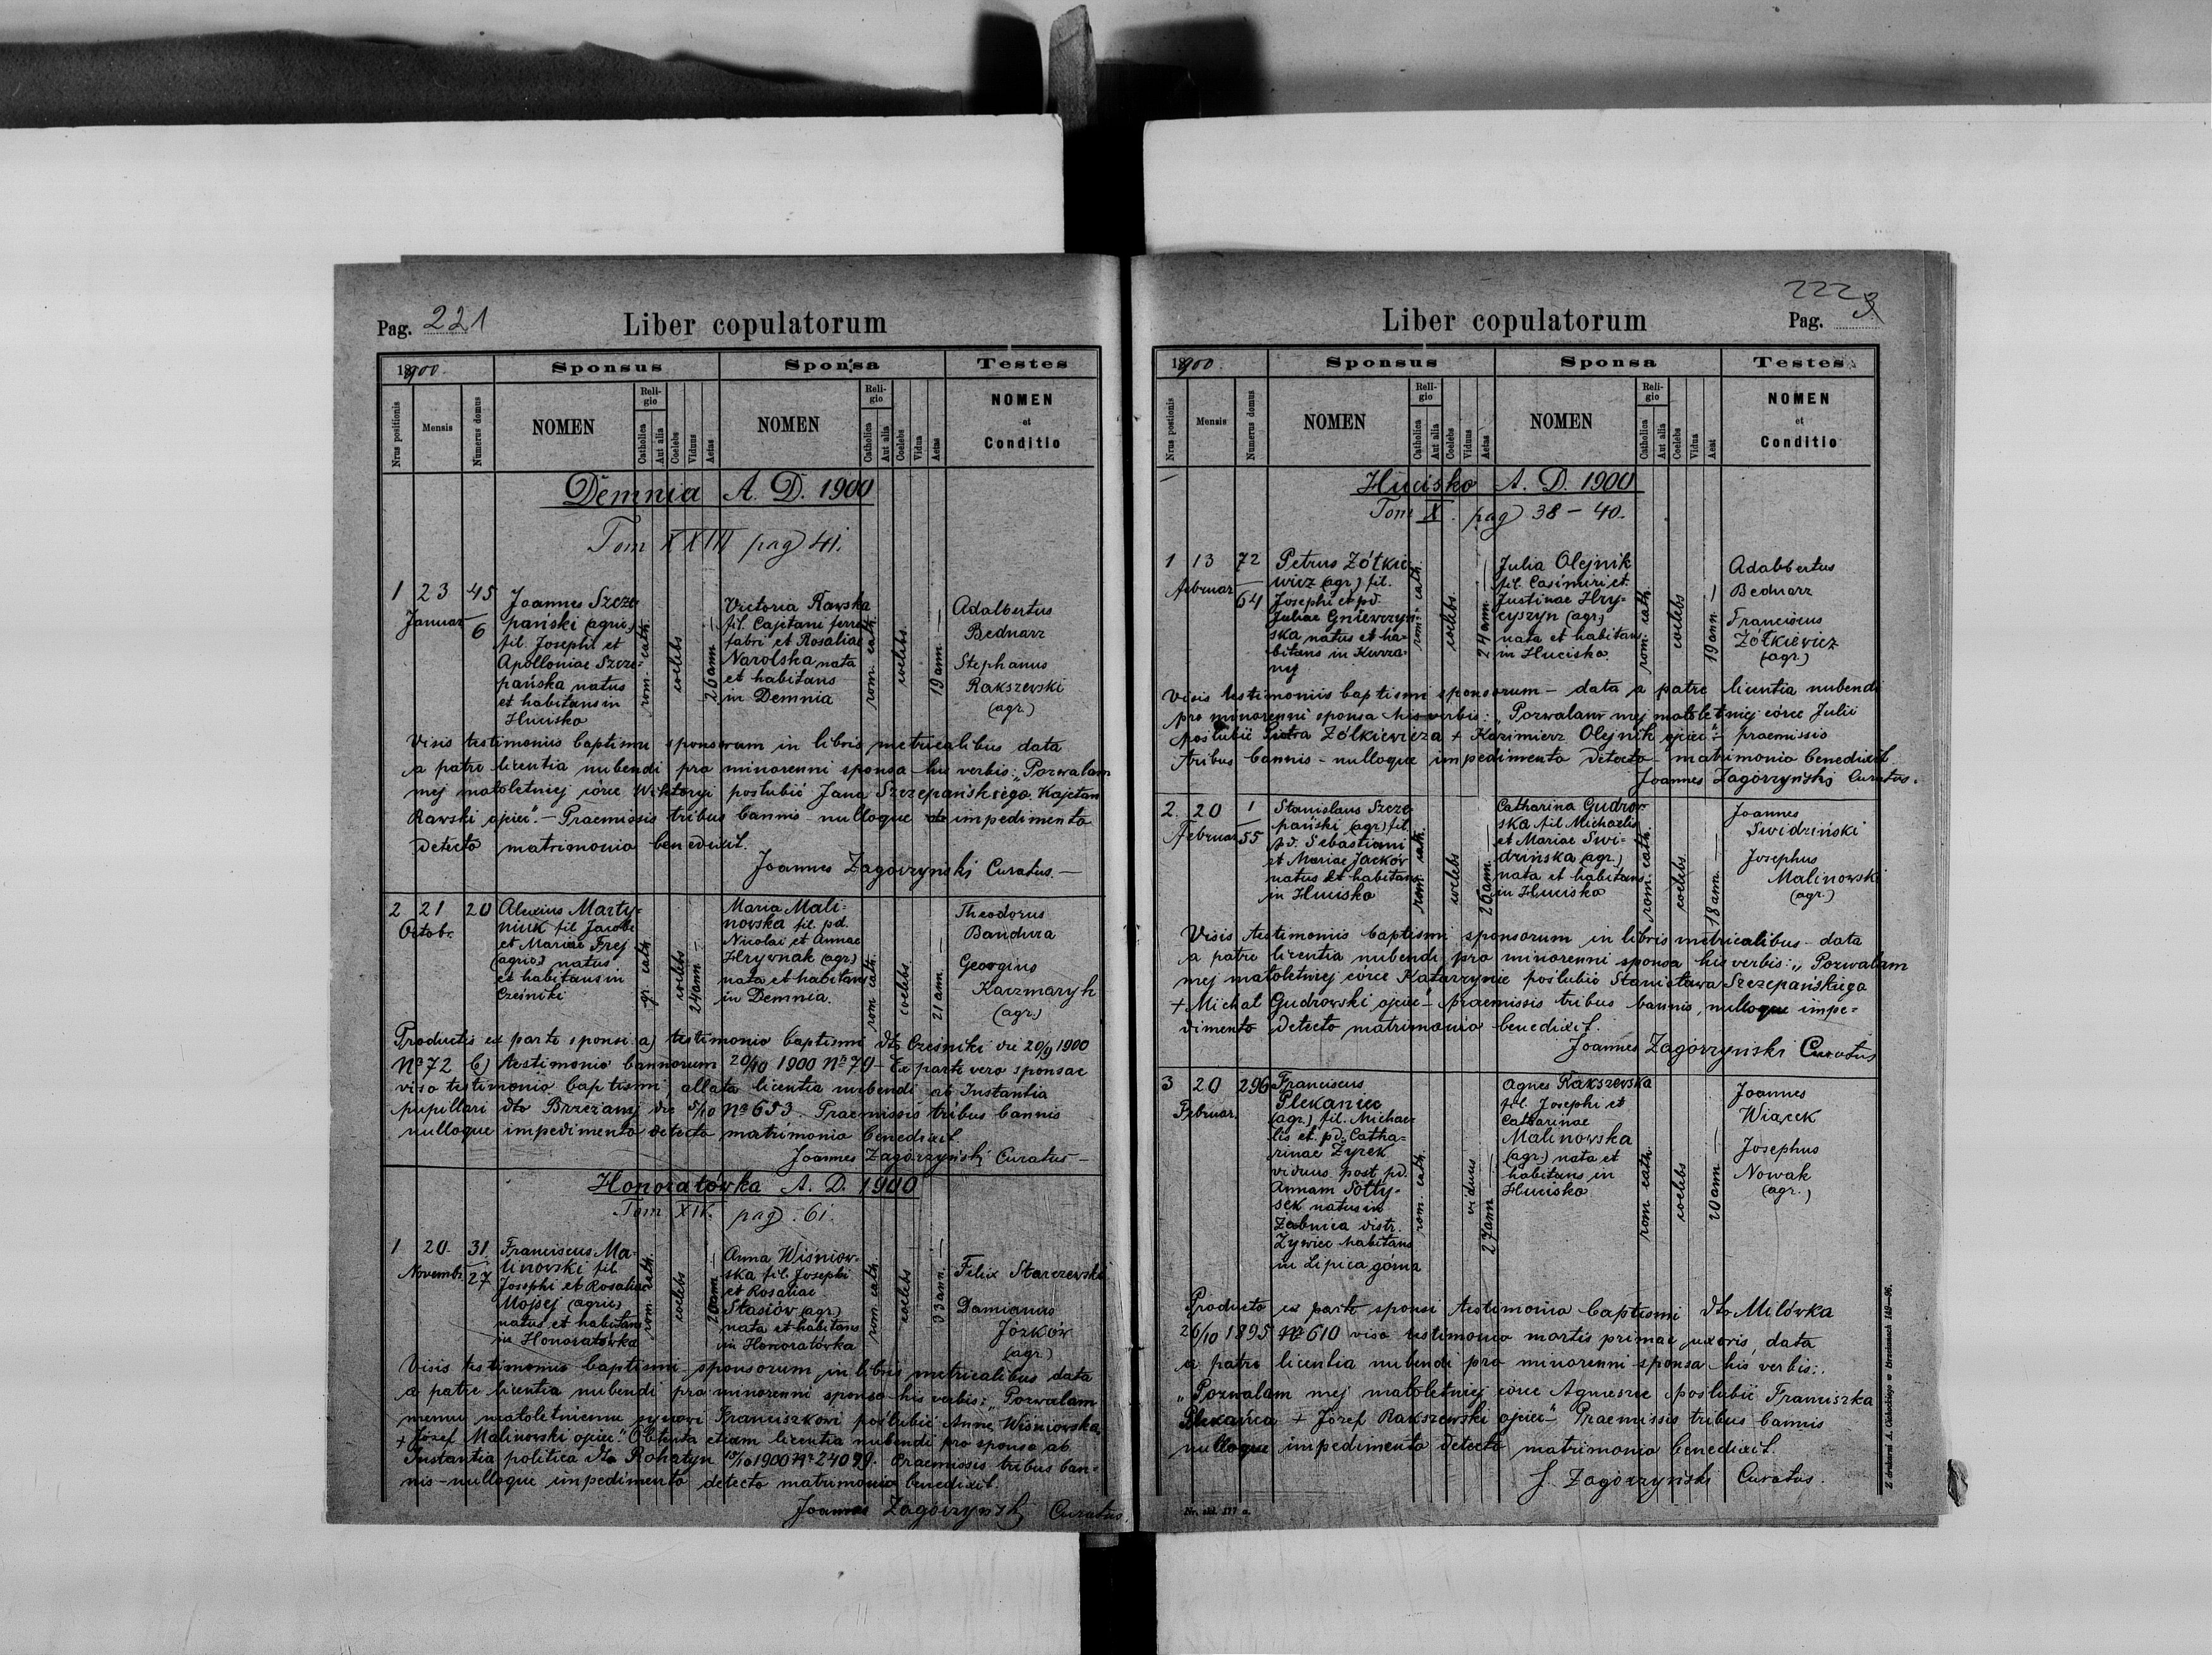 Pag. 221
Liber copulatorum
1900
Sponsus
Sponsa
Testes
Nrus positionis
Mensis
Numerus domus
NOMEN
Religio
Catholica
Aut alia
Coelebs
Viduus
Aetas
NOMEN
Religio
Catholica
Aut alia
Coelebs
Vidua
Aetas
NOMEN
et
Conditio
Demnia A. D. 1900
Tom XXIII pag 41.
1
23
Januar
45
6
Joannes Szcze-
pański (agric.)
fil. Josephi et
Apolloniae Szcze-
pańska natus
et habitans in
Hucisko
rom. cath.
coelebs
26 ann
Victoria Rawska
fil. Cajetani ferri
fabri et Rosaliae
Narolska nata
et habitans
in Demnia
rom. cath.
coelebs
19 ann
Adalbertus
Bednarz
Stephanus
Rakszewski
(agr.)
Visis testimoniis baptismi sponsorum in libris metricalibus data
a patre licentia nubendi pro minorenni sponsa his verbis: „Pozwalam
mej małoletniej córce Wiktoryi poślubić Jana Szczepańskiego. Kajetan
Rawski ojciec". – Praemissis tribus bannis – nulloque impedimento
detecto matrimonio benedixit.
Joannes Zagórzyński Curatus. –
2
21
Octobr.
20
Alexius Marty-
niuk fil Jacobi
et Mariae Frej
(agric.) natus
et habitans in
Cześniki
gr. cath
coelebs
24 ann
Maria Mali-
nowska fil. pd.
Nicolai et Annae
Hrywnak (agr)
nata et habitans
in Demnia.
rom cath.
coelebs.
21 ann
Theodorus
Bandura
Georgius
Kaczmaryk
(agr.)
Productis ex parte sponsi a) testimonio baptismi dto Cześniki die 20/9 1900
No 72 b) testimonio bannorum 20/10 1900 No 79 – Ex parte vero sponsae
viso testimonio baptismi allata licentia nubendi ab Instantia
pupillari dto Brzeżany die 5/10 No 653. Praemissis tribus bannis
nulloque impedimento detecto matrimonio benedixit.
Joannes Zagórzyński Curatus –
Honoratówka A. D. 1900
Tom XIV. pag. 61.
1
20
Novembr.
31
27
Franciscus Ma-
linowski fil
Josephi et Rosaliae
Mojsej (agric)
natus et habitans
in Honoratówka
rom. cath.
coelebs
20 ann
Anna Wiśniow-
ska fil. Josephi
et Rosaliae
Stasiów (agr.)
nata et habitans
in Honoratówka
rom cath.
coelebs
33 ann.
Felix Starczewski
Damianus
Józków
(agr.)
Visis testimoniis baptismi sponsorum in libris metricalibus data
a patre licentia nubendi pro minorenni sponso his verbis: „Pozwalam
memu małoletniemu synowi Franciszkowi poślubić Annę Wiśniowską
+ Józef Malinowski ojciec." Obtenta etiam licentia nubendi pro sponso ab
Instantia politica dto Rohatyn 1900 No 24099. Praemissis tribus ban-
nis – nulloque impedimento detecto matrimonio benedixit.
Joannes Zagórzyński Curatus.
222
Pag. 3
Liber copulatorum
1900
Sponsus
Sponsa
Testes
Nrus positionis
Mensis
Numerus domus
NOMEN
Religio
Catholica
Aut alia
Coelebs
Viduus
Aetas
NOMEN
Religio
Catholica
Aut alia
Coelebs
Vidua
Aetat
NOMEN
et
Conditio
Hucisko A. D. 1900
Tom X. pag 38 – 40.
1
13
Februar
72
64
Petrus Żółkie-
wicz (agr.) fil.
Josephi et pd.
Juliae Gniewczyń-
ska natus et ha-
bitans in Kurza-
ny
rom. cath.
coelebs.
24 ann
Julia Olejnik
fil. Casimiri et
Justinae Hry-
cyszyn (agr.)
nata et habitans
in Hucisko.
rom. cath.
coelebs
19 ann
Adalbertus
Bednarz
Franciscus
Żółkiewicz
(agr.)
Visis testimoniis baptismi sponsorum – data a patre licentia nubendi
pro minorenni sponsa his verbis: „Pozwalam mej małoletniej córce Julii
poślubić Piotra Żółkiewicza + Kazimierz Olejnik ojciec" – praemissis
tribus bannis – nulloque impedimento detecto – matrimonio benedixit
Joannes Zagórzyński Curatus.
2.
20
Februar
1
55
Stanislaus Szcze-
pański (agr) fil.
pd. Sebastiani
et Mariae Jacków
natus et habitans
in Hucisko
rom. cath.
coelebs
26 ann
Catharina Gudrow-
ska fil Michaelis
et Mariae Swi-
drzińska (agr.)
nata et habitans
in Hucisko
rom. cath.
coelebs
18 ann.
Joannes
Swidziński
Josephus
Malinowski
(agr.)
Visis testimoniis baptismi sponsorum in libris metricalibus – data
a patre licentia nubendi pro minorenni sponsa his verbis: „Pozwalam
mej małoletniej córce Katarzynie poślubić Stanisława Szczepańskiego
+ Michał Gudrowski ojciec" – praemissis tribus bannis, nulloque impe-
dimento detecto matrimonio benedixit.
Joannes Zagórzyński Curatus
3
20
Februar.
296
Franciscus
Plekaniec
(agr.) fil. Michae-
lis et pd. Catha-
rinae Żyrek
viduus post pd.
Annam Sołty-
sek natus in
Żabnica distr.
Żywiec habitans
in Lipica górna
rom. cath.
viduus
27 ann
Agnes Rakszewska
fil. Josephi et
Catharinae
Malinowska
(agr.) nata et
habitans in
Hucisko
rom cath.
coelebs
20 ann
Joannes
Wiącek
Josephus
Nowak
(agr.)
Producto ex parte sponsi testimonio baptismi dto Milówka
26/10 1895 No 610 viso testimonio mortis primae uxoris, data
a patre licentia nubendi pro minorenni sponsa his verbis:
„Pozwalam mej małoletniej córce Agnieszce poślubić Franciszka
Plekańca + Józef Rakszewski ojciec" – Praemissis tribus bannis
nulloque impedimento detecto matrimonio benedixit.
J. Zagórzyński Curatus.
Nr. skł. 177 a.
Z drukarni A. Cichockiego w Brzeżanach 149–96.